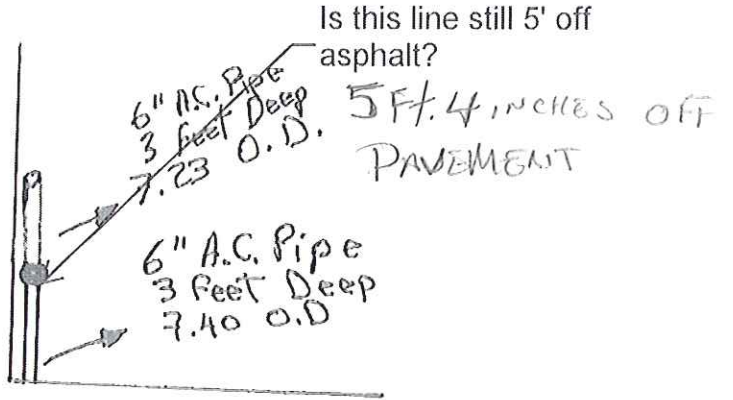 Is this line still 5' off
asphalt?
6" A.C. Pipe
3 feet Deep
7.23 O.D.
5 Ft. 4 INCHES OFF
PAVEMENT
6" A.C. Pipe
3 feet Deep
7.40 O.D